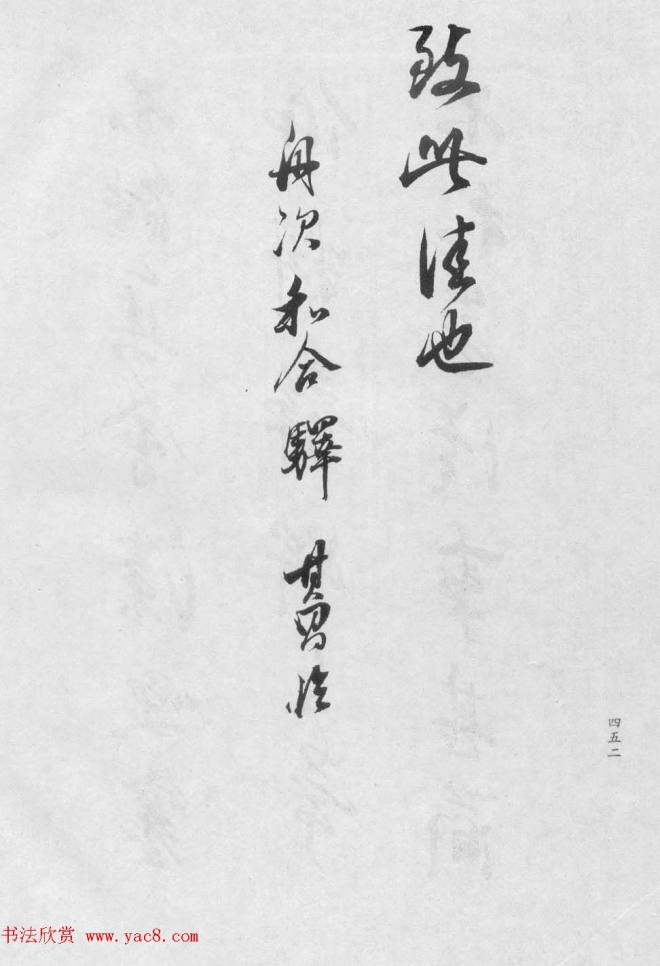 致此佳也
舟次和合驛 其昌
四五二
书法欣赏 www.yac8.com